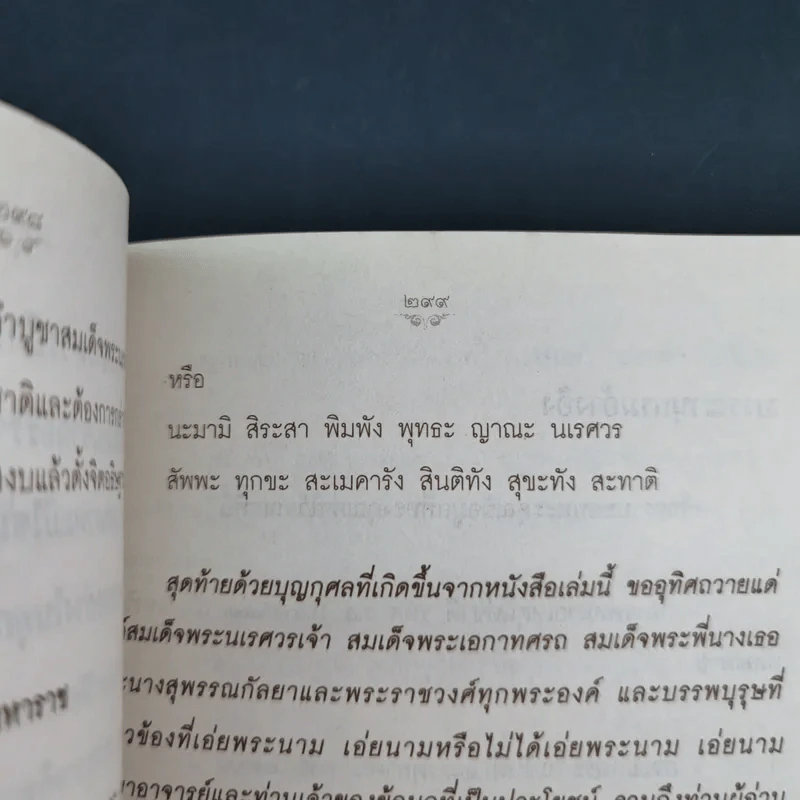 ๒๙๘
คำบูชาสมเด็จพระ
ชาติและต้องการ
งบแล้วตั้งจิตอธิษฐ
หาราช
๒๙๙
หรือ
นะมามิ สิระสา พิมพัง พุทธะ ญาณะ นเรศวร
สัพพะ ทุกขะ สะเมคารัง สินติทัง สุขะทัง สะทาติ
สุดท้ายด้วยบุญกุศลที่เกิดขึ้นจากหนังสือเล่มนี้ ขออุทิศถวายแด่
สมเด็จพระนเรศวรเจ้า สมเด็จพระเอกาทศรถ สมเด็จพระพี่นางเธอ
ะนางสุพรรณกัลยาและพระราชวงศ์ทุกพระองค์ และบรรพบุรุษที่
วข้องที่เอ่ยพระนาม เอ่ยนามหรือไม่ได้เอ่ยพระนาม เอ่ยนาม
าอาจารย์และท่านเจ้าของข้อมูลที่เป็นประโยชน์ รวมถึงท่านผู้อ่าน